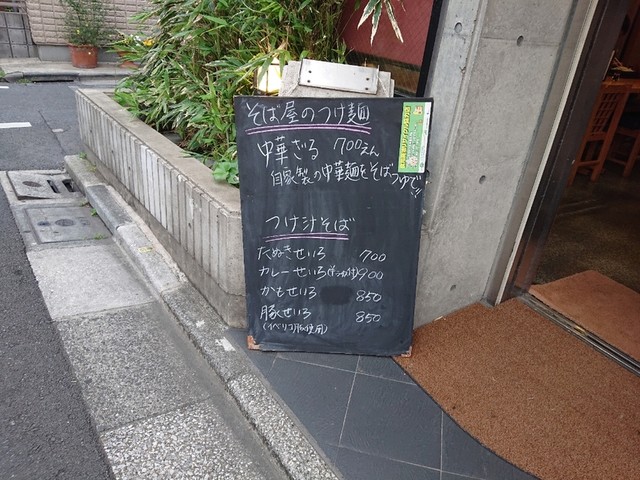 そば屋のつけ麺
中華ざる 700えん
自家製の中華麺をそばつゆで!!
つけ汁そば
たぬきせいろ 700
カレーせいろ 900
かもせいろ 850
豚せいろ 850
(イベリコ豚使用)